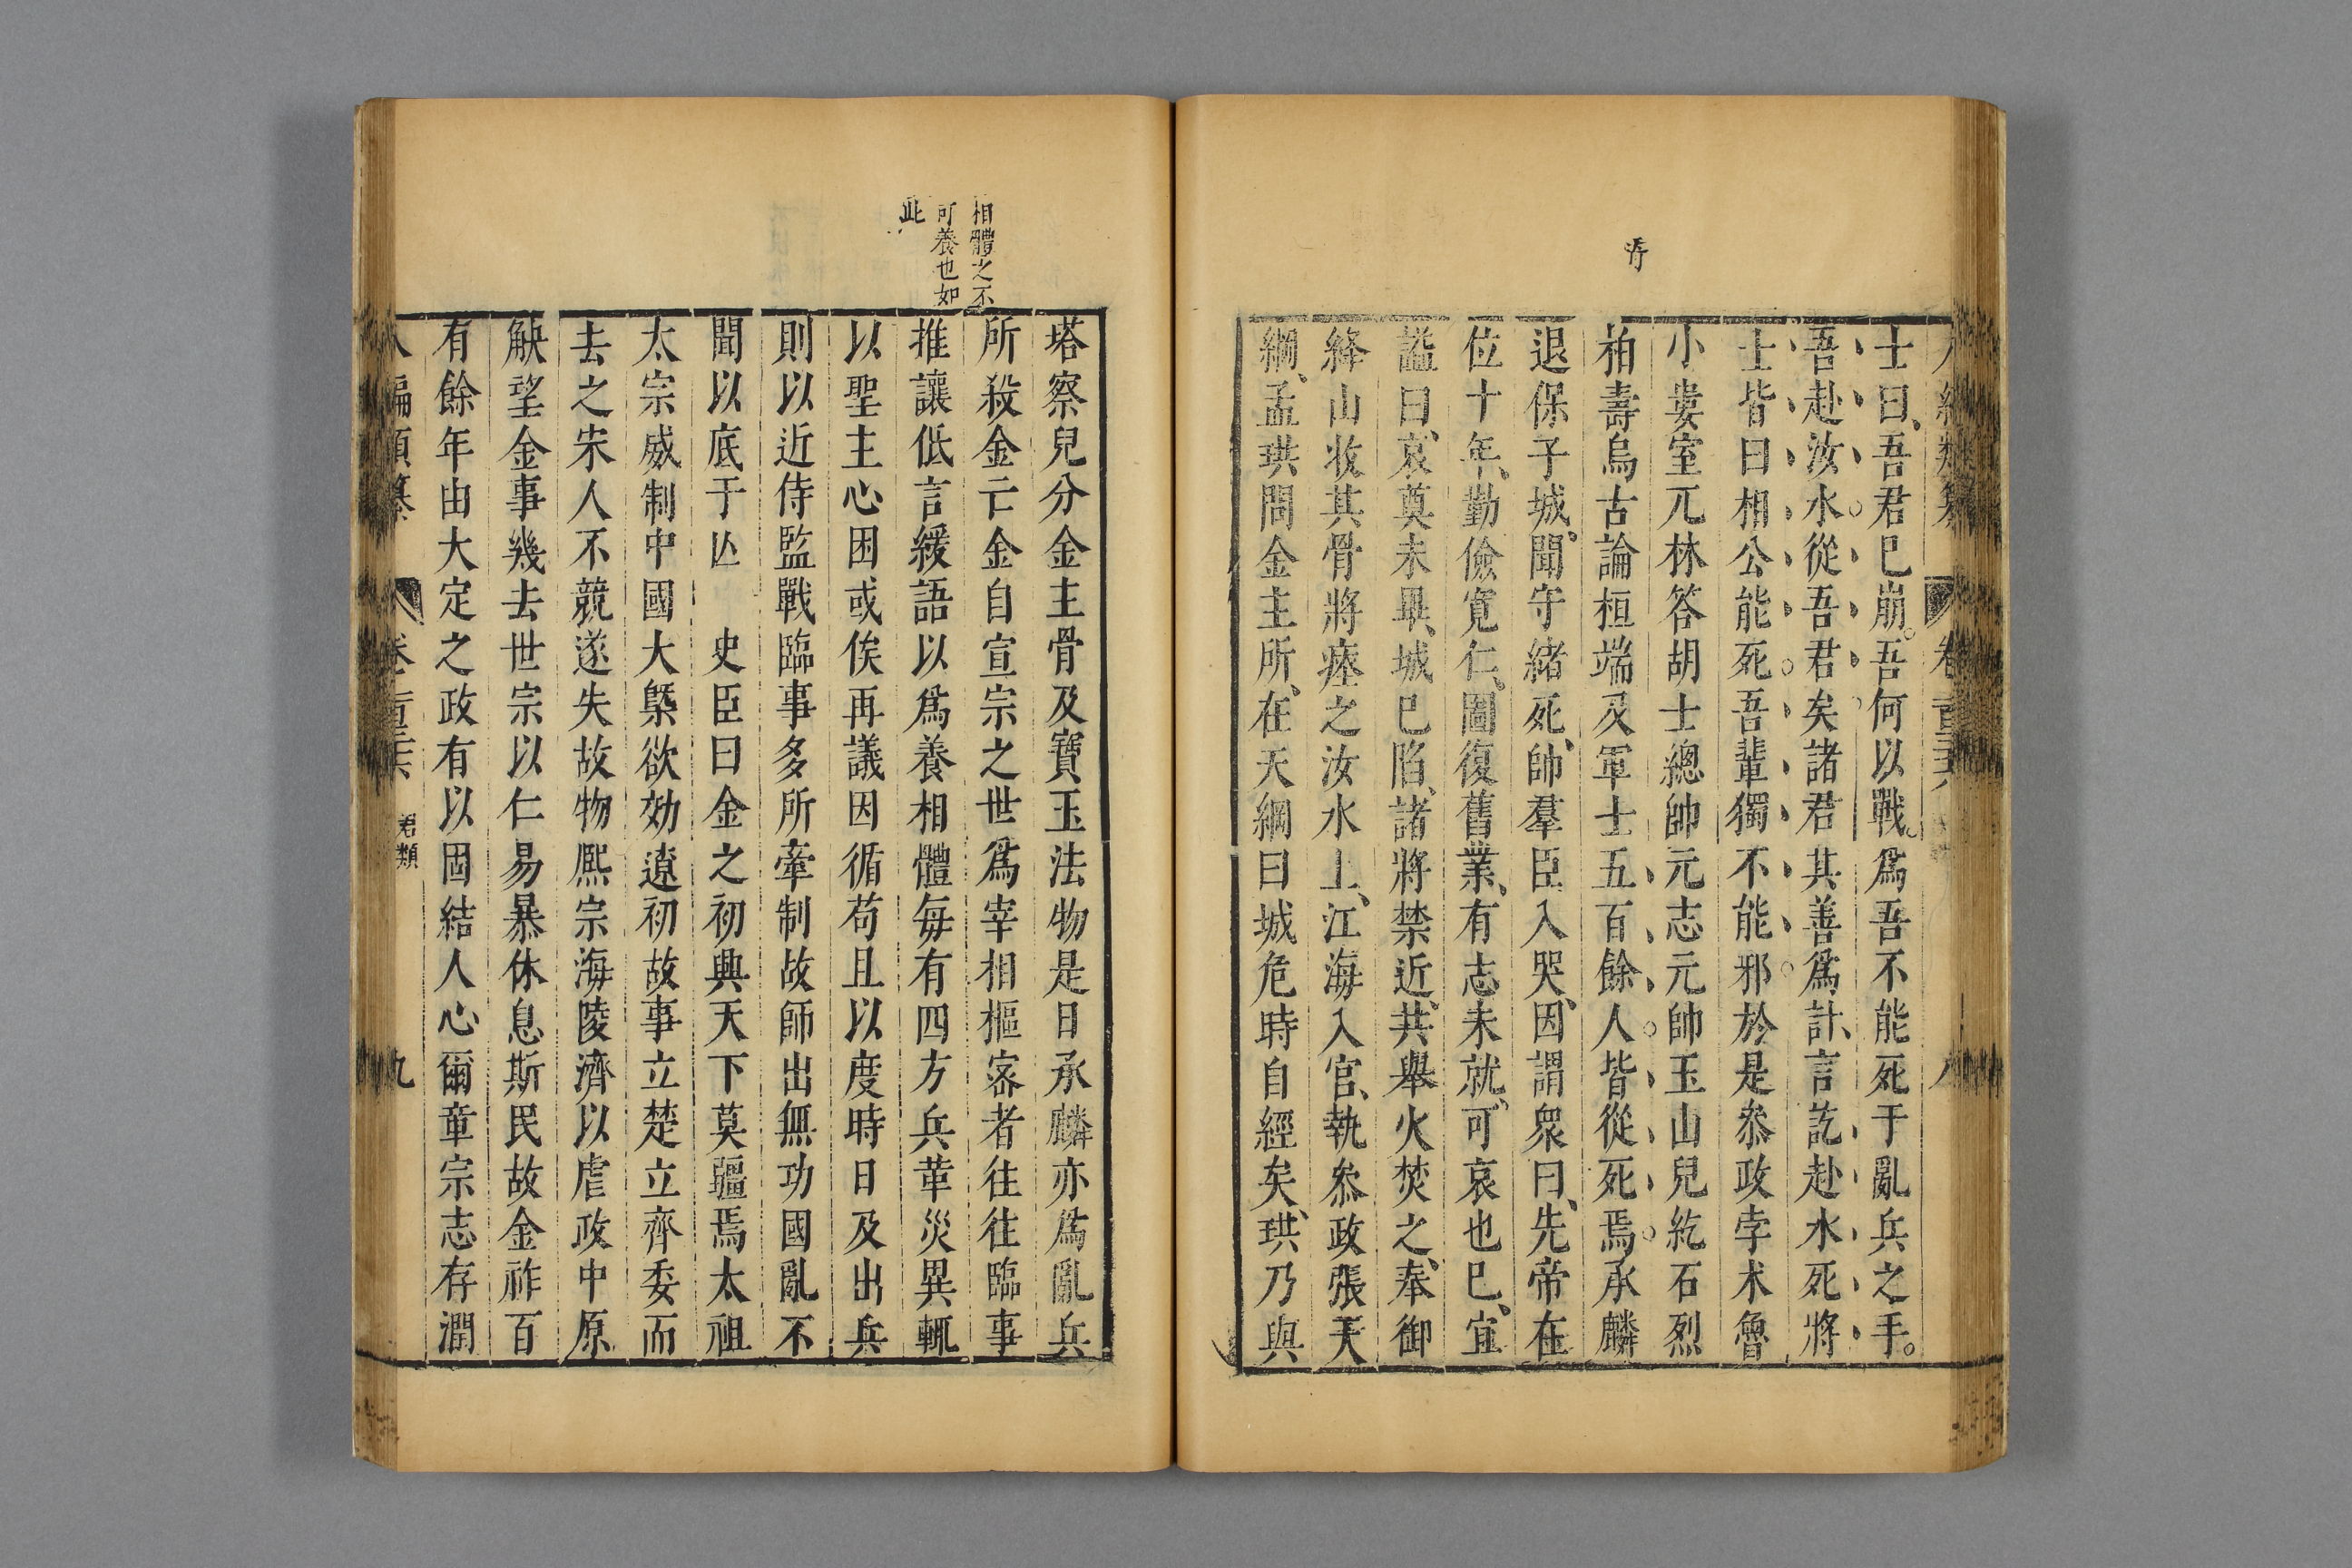 士曰吾君巳崩吾何以戰爲吾不能死于亂兵之手
吾赴汝水從吾君矣諸君其善爲計言訖赴水死將
士皆曰相公能死吾輩獨不能邪於是叅政孛术魯
小婁室兀林答胡士總帥元志元帥玉山兒紇石烈
柏壽烏古論桓端及軍士五百餘人皆從死焉承麟
退保子城聞守緒死帥羣臣入哭因謂衆曰先帝在
位十年勤儉寛仁圖復舊業有志未就可哀也巳宜
謚曰哀奠未畢城巳陷諸將禁近共舉火焚之奉御
絳山收其骨將瘞之汝水上江海入宫執叅政張天
綱孟珙問金主所在天綱曰城危時自經矣珙乃與
相體之不
可養也如
此
塔察兒分金主骨及寶玉法物是日承麟亦爲亂兵
所殺金亡金自宣宗之世爲宰相樞宻者往往臨事
推讓低言緩語以爲養相體每有四方兵革災異輒
以聖主心困或俟再議因循苟且以度時日及出兵
則以近侍監戰臨事多所牽制故師出無功國亂不
聞以底于亾 史臣曰金之初興天下莫彊焉太祖
太宗威制中國大槩欲効遼初故事立楚立齊委而
去之宋人不競遂失故物熈宗海陵濟以虐政中原
觖望金事幾去世宗以仁易暴休息斯民故金祚百
有餘年由大定之政有以固結人心爾章宗志存潤
君類
九